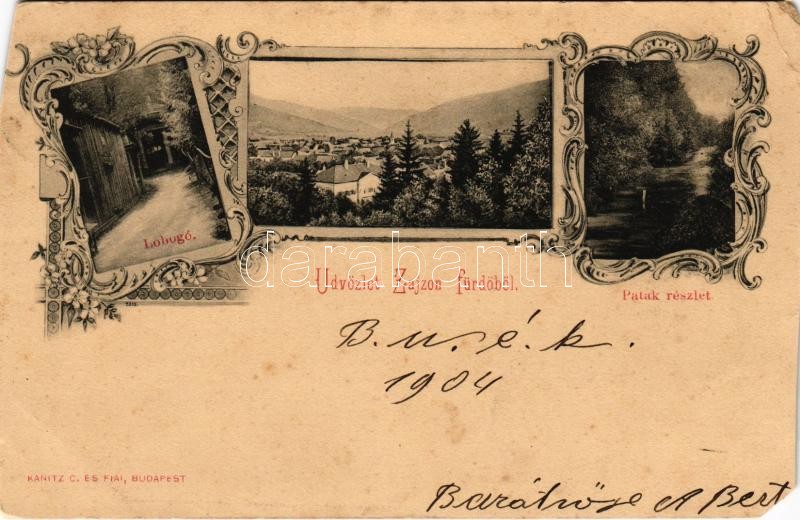 Lobogó.
Üdvözlet Zajzon fürdőből.
Patak részlet.
darabanth
B. u. é. k.
1904
KANITZ C. ÉS FIAI, BUDAPEST
A Bert